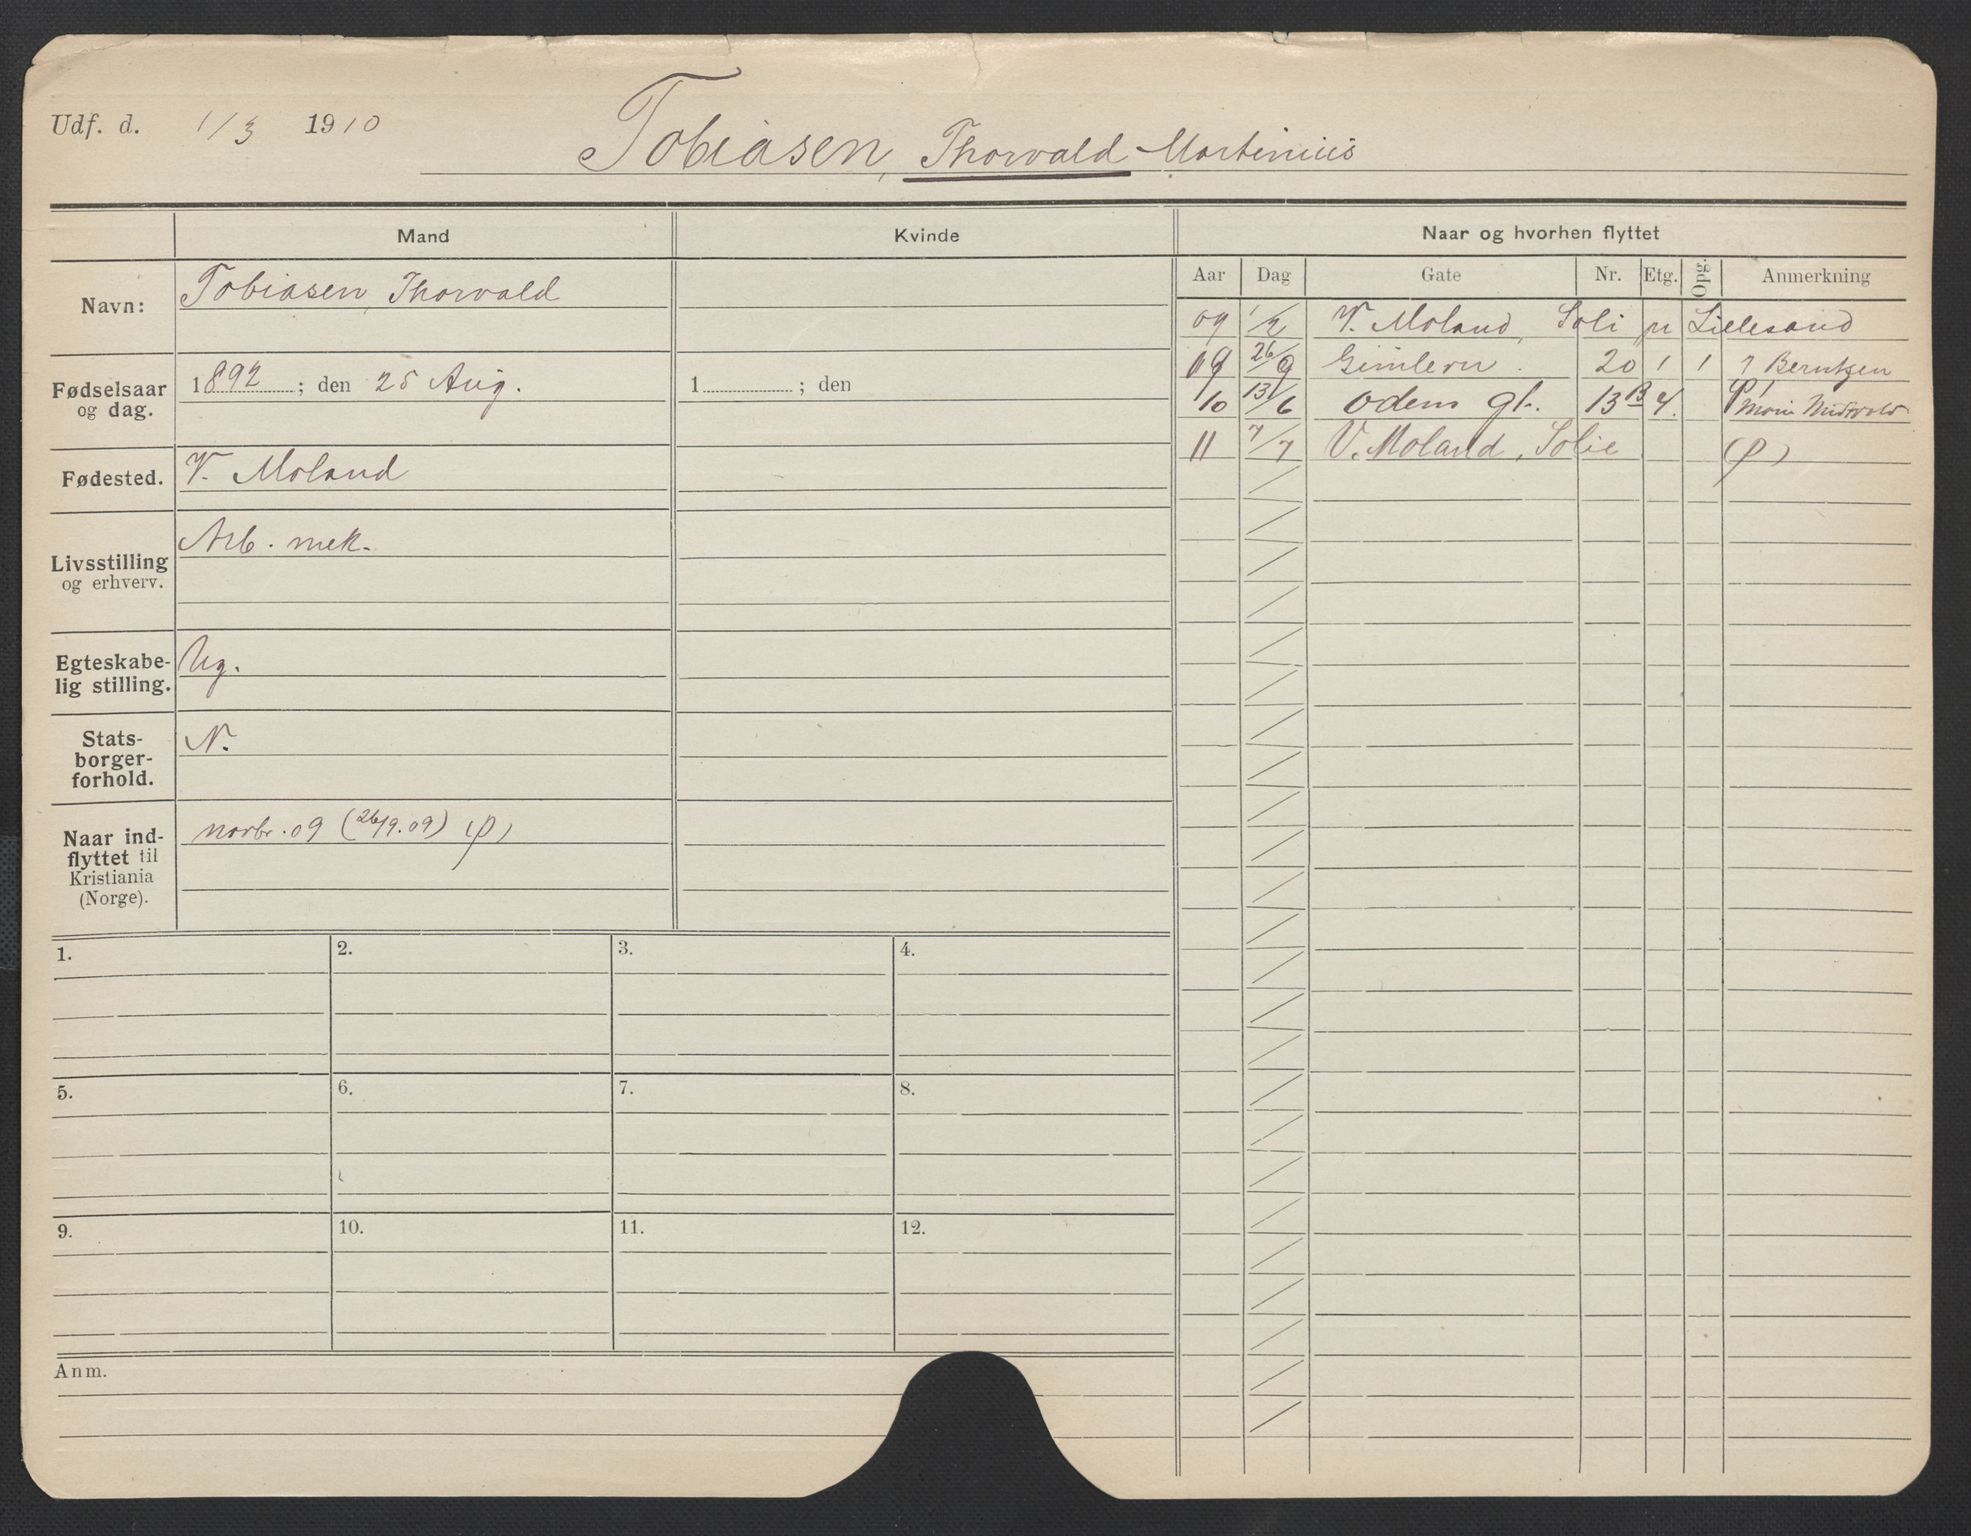 Udf. d. 1/3 1910
Tobiasen, Thorvald Martinius
Mand
Kvinde
Naar og hvorhen flyttet
Aar Dag Gate Nr. Etg. Opg. Anmerkning
Navn:
Tobiasen, Thorvald
09 1/2 V. Moland, Soli pr Lillesand
09 26/9 Gimlevn. 20 1 1 Berntzen
10 13/6 Odens gt. 13B 4.
11 7/7 V. Moland, Solie (p)
Fødselsaar
og dag.
1892; den 25 Aug.
1 ; den
Fødested.
V. Moland
Livsstilling
og erhverv.
Arb. mek.
Egteskabe-
lig stilling.
Ug.
Stats-
borger-
forhold.
N.
Naar ind-
flyttet til
Kristiania
(Norge).
novbr. 09 (26/9.09) (p)
1. 2. 3. 4.
5. 6. 7. 8.
9. 10. 11. 12.
Anm.